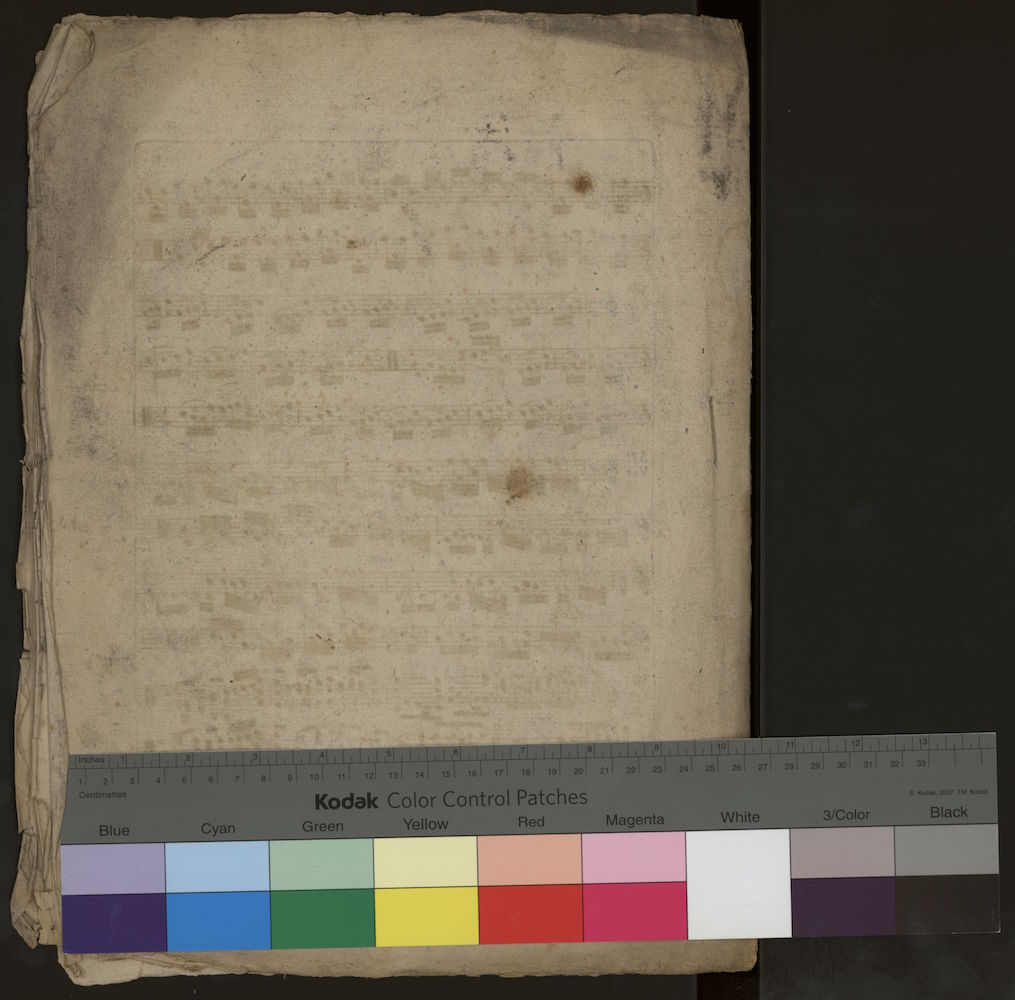 Inches 1 2 3 4 5 6 7 8 9 10 11 12 13
1 2 3 4 5 6 7 8 9 10 11 12 13 14 15 16 17 18 19 20 21 22 23 24 25 26 27 28 29 30 31 32 33
Centimetres
© Kodak, 2007 TM: Kodak
Kodak Color Control Patches
Blue Cyan Green Yellow Red Magenta White 3/Color Black